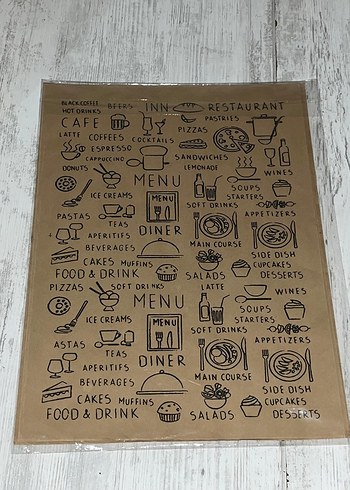 BLACK COFFEE BEERS INN THE RESTAURANT
HOT DRINKS
CAFE PASTRIES
LATTE COFFEES COCKTAILS PIZZAS
ESPRESSO
CAPPUCCINO SANDWICHES
DONUTS LEMONADE WINES
MENU SOUPS
ICE CREAMS STARTERS
MENU SOFT DRINKS
PASTAS TEAS APPETIZERS
APERITIFS DINER
BEVERAGES MAIN COURSE
SIDE DISH
CAKES MUFFINS CUPCAKES
FOOD & DRINK SALADS DESSERTS
PIZZAS SOFT DRINKS LATTE WINES
MENU SOUPS
ICE CREAMS STARTERS
MENU SOFT DRINKS
ASTAS TEAS APPETIZERS
APERITIFS DINER
BEVERAGES MAIN COURSE
SIDE DISH
CAKES MUFFINS CUPCAKES
FOOD & DRINK SALADS DESSERTS